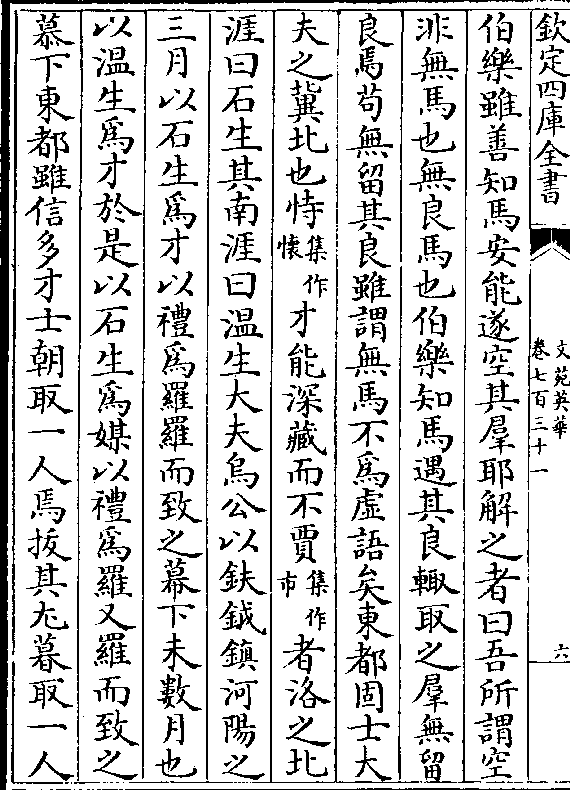 欽定四庫全書
文苑英華
卷七百三十一
六
伯樂雖善知馬安能遂空其羣耶解之者曰吾所謂空
非無馬也無良馬也伯樂知馬遇其良輙取之羣無留
良焉苟無留其良雖謂無馬不為虛語矣東都固士大
夫之冀北也恃集作懷才能深藏而不賈集作市者洛之北
涯曰石生其南涯曰温生大夫烏公以鈇鉞鎮河陽之
三月以石生爲才以禮爲羅羅而致之幕下未數月也
以温生爲才於是以石生爲媒以禮爲羅又羅而致之
慕下東都雖信多才士朝取一人焉拔其尤暮取一人